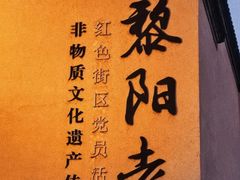 黎阳
红色街区党员活
非物质文化遗产体